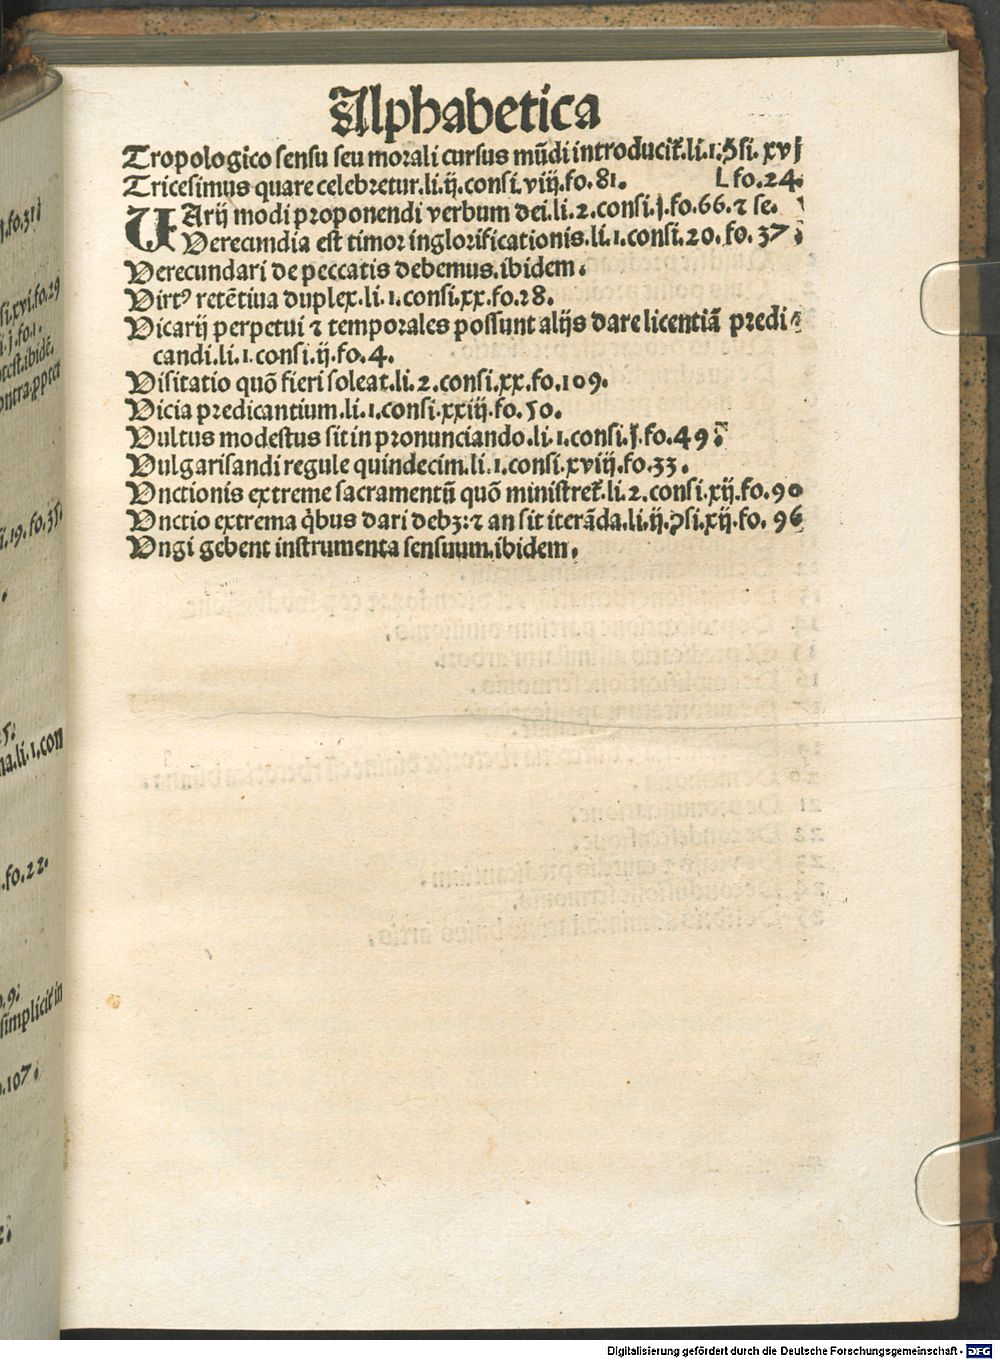 Alphabetica
Tropologico sensu seu morali cursus mūdi introducit̄.li.1.ꝯsi.xvj
Tricesimus quare celebretur.li.ij.consi.viij.fo.81. L fo.24.
VArij modi proponendi verbum dei.li.2.consi.j.fo.66.⁊ se.
Verecundia est timor inglorificationis.li.1.consi.20.fo.37.
Verecundari de peccatis debemus.ibidem.
Virtꝰ retētiua duplex.li.1.consi.xx.fo.28.
Vicarij perpetui ⁊ temporales possunt alijs dare licentiā predi
candi.li.1.consi.ij.fo.4.
Visitatio quō fieri soleat.li.2.consi.xx.fo.109.
Vicia predicantium.li.1.consi.xxiij.fo.50.
Vultus modestus sit in pronunciando.li.1.consi.j.fo.49
Vulgarisandi regule quindecim.li.1.consi.xviij.fo.33.
Vnctionis extreme sacramentū quō ministret̄.li.2.consi.xij.fo.90
Vnctio extrema q̇bus dari debꝫ:⁊ an sit iterāda.li.ij.ꝯsi.xij.fo.96
Vngi gebent instrumenta sensuum.ibidem.
fo.31
si.xvi.fo.29
.j.fo.1.
test.ibidē.
ontra.ꝓpter
i.19.fo.35
5:
na.li.1.con
.fo.22.
.9:
simplicit̄ in
.107.
Digitalisierung gefördert durch die Deutsche Forschungsgemeinschaft - DFG